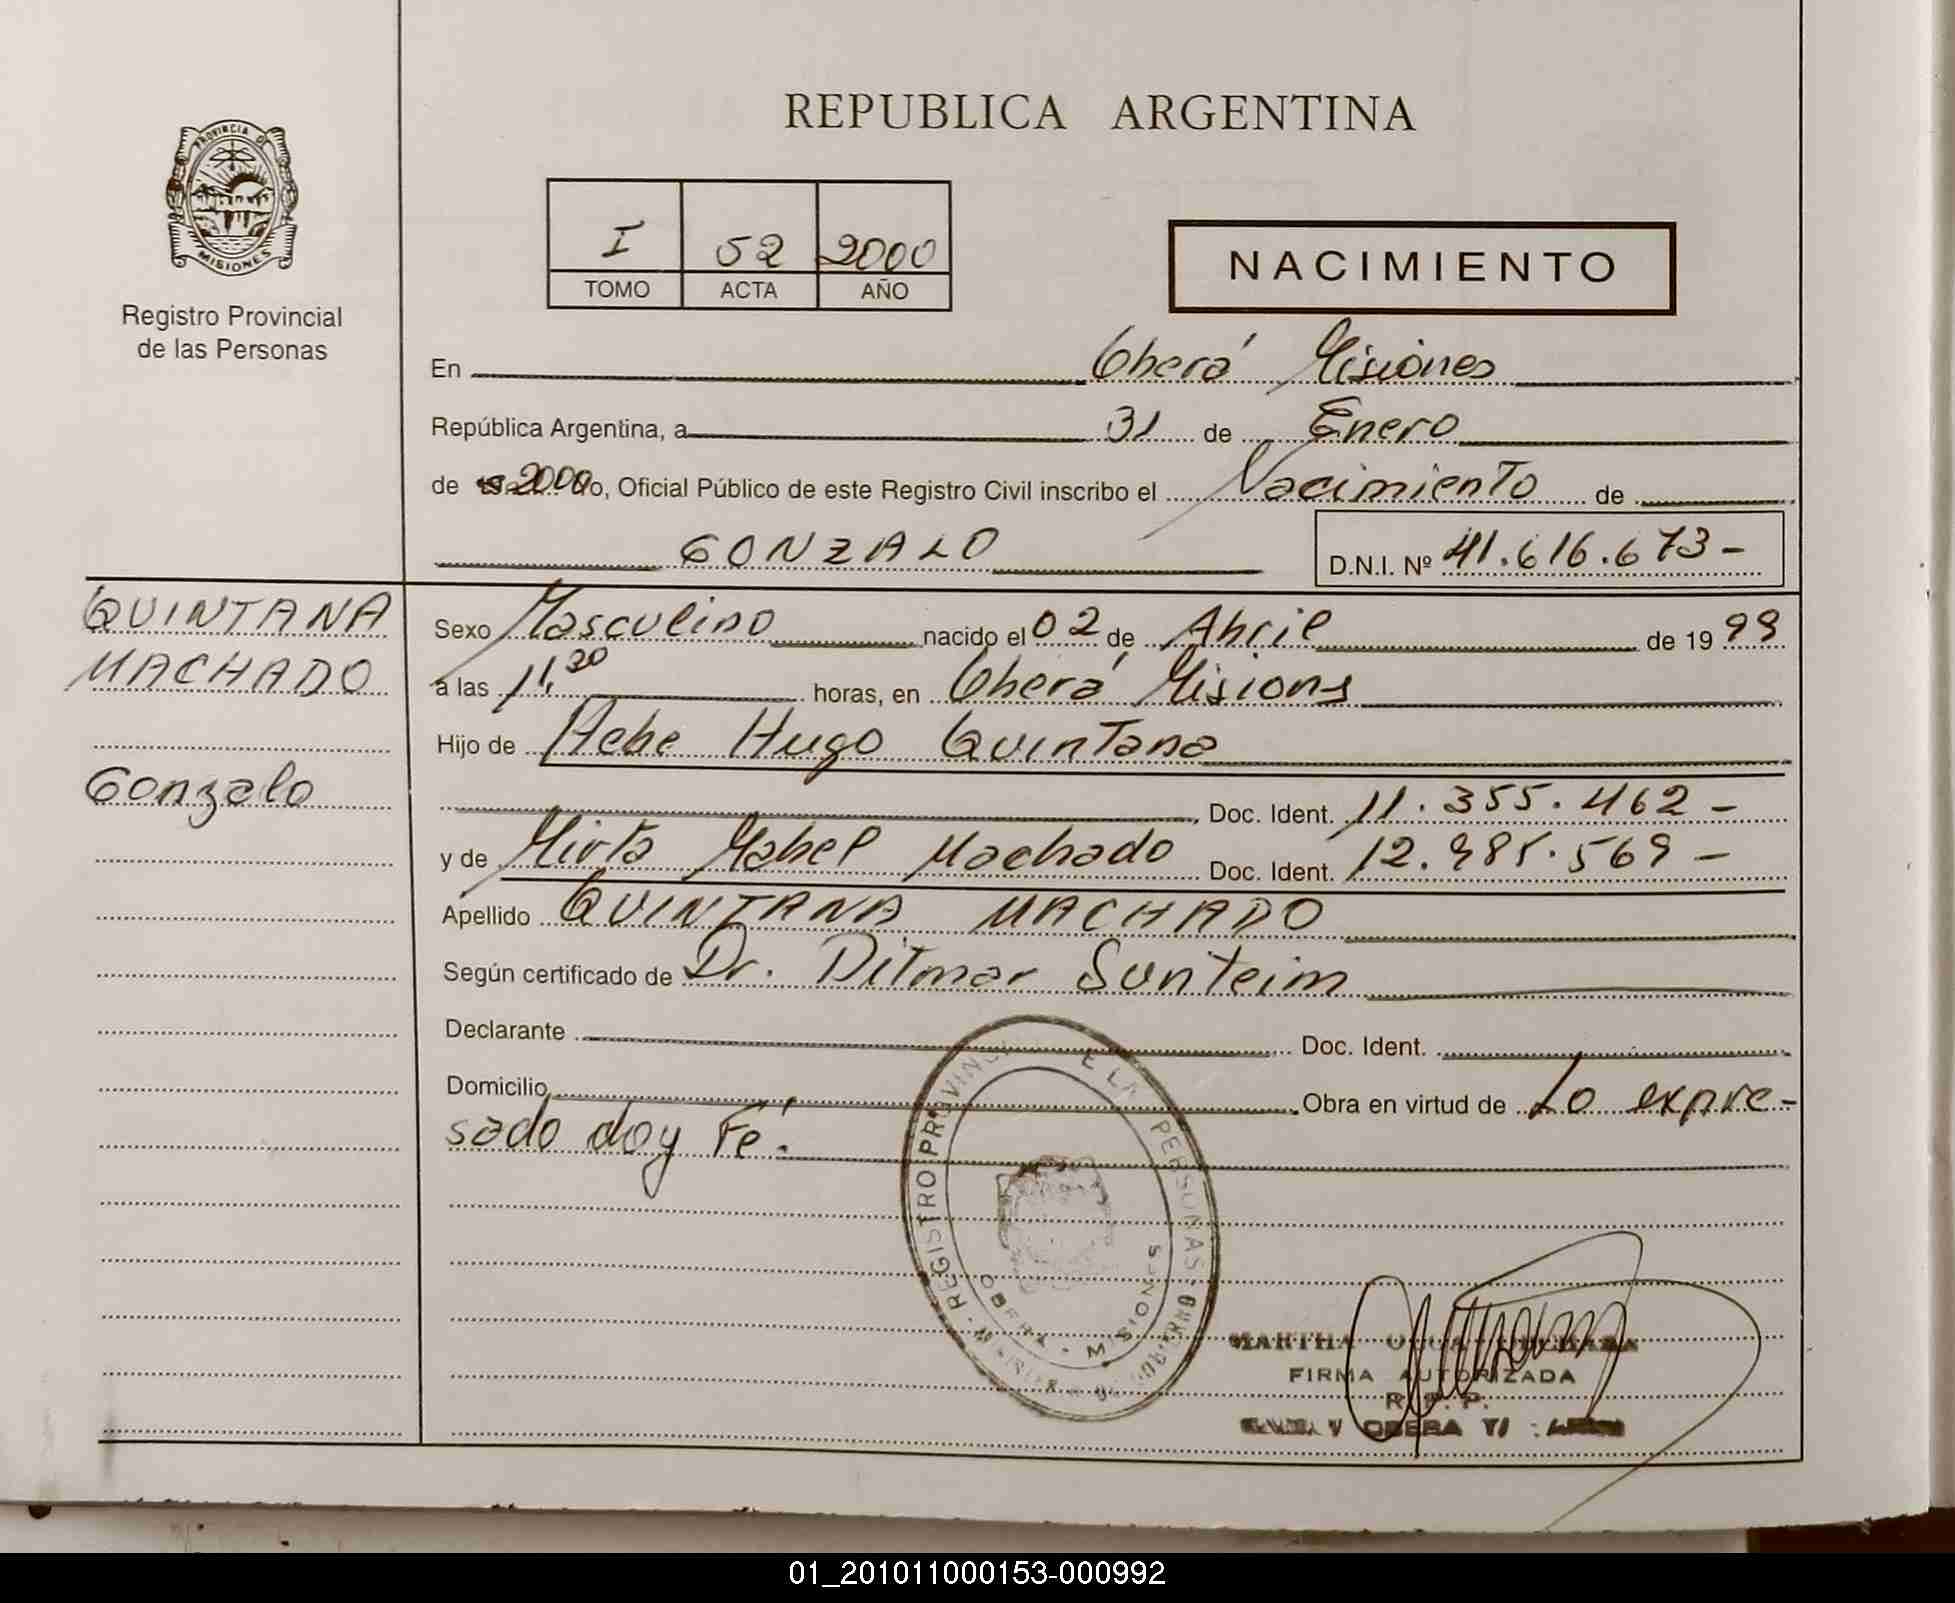 REPUBLICA ARGENTINA
PROVINCIA DE
MISIONES
Registro Provincial
de las Personas
I 52 2000
TOMO ACTA AÑO
NACIMIENTO
En Oberá Misiones
República Argentina, a 31 de Enero
de 2000 yo, Oficial Público de este Registro Civil inscribo el Nacimiento de
GONZALO D.N.I. Nº 41.616.673-
QUINTANA
MACHADO
Gonzalo
Sexo Masculino nacido el 02 de Abril de 19 99
a las 11,30 horas, en Oberá Misiones
Hijo de Hebe Hugo Quintana
Doc. Ident. 11.355.462-
y de Mirta Mabel Machado Doc. Ident. 12.985.569-
Apellido QUINTANA MACHADO
Según certificado de Dr. Ditmar Sunteim
Declarante Doc. Ident.
Domicilio Obra en virtud de Lo expre-
sado doy Fé.
REGISTRO PERSONAS
OBERA - MISIONES
MARTHA OLGA
FIRMA AUTORIZADA
R. P. P.
OBERA
01_201011000153-000992